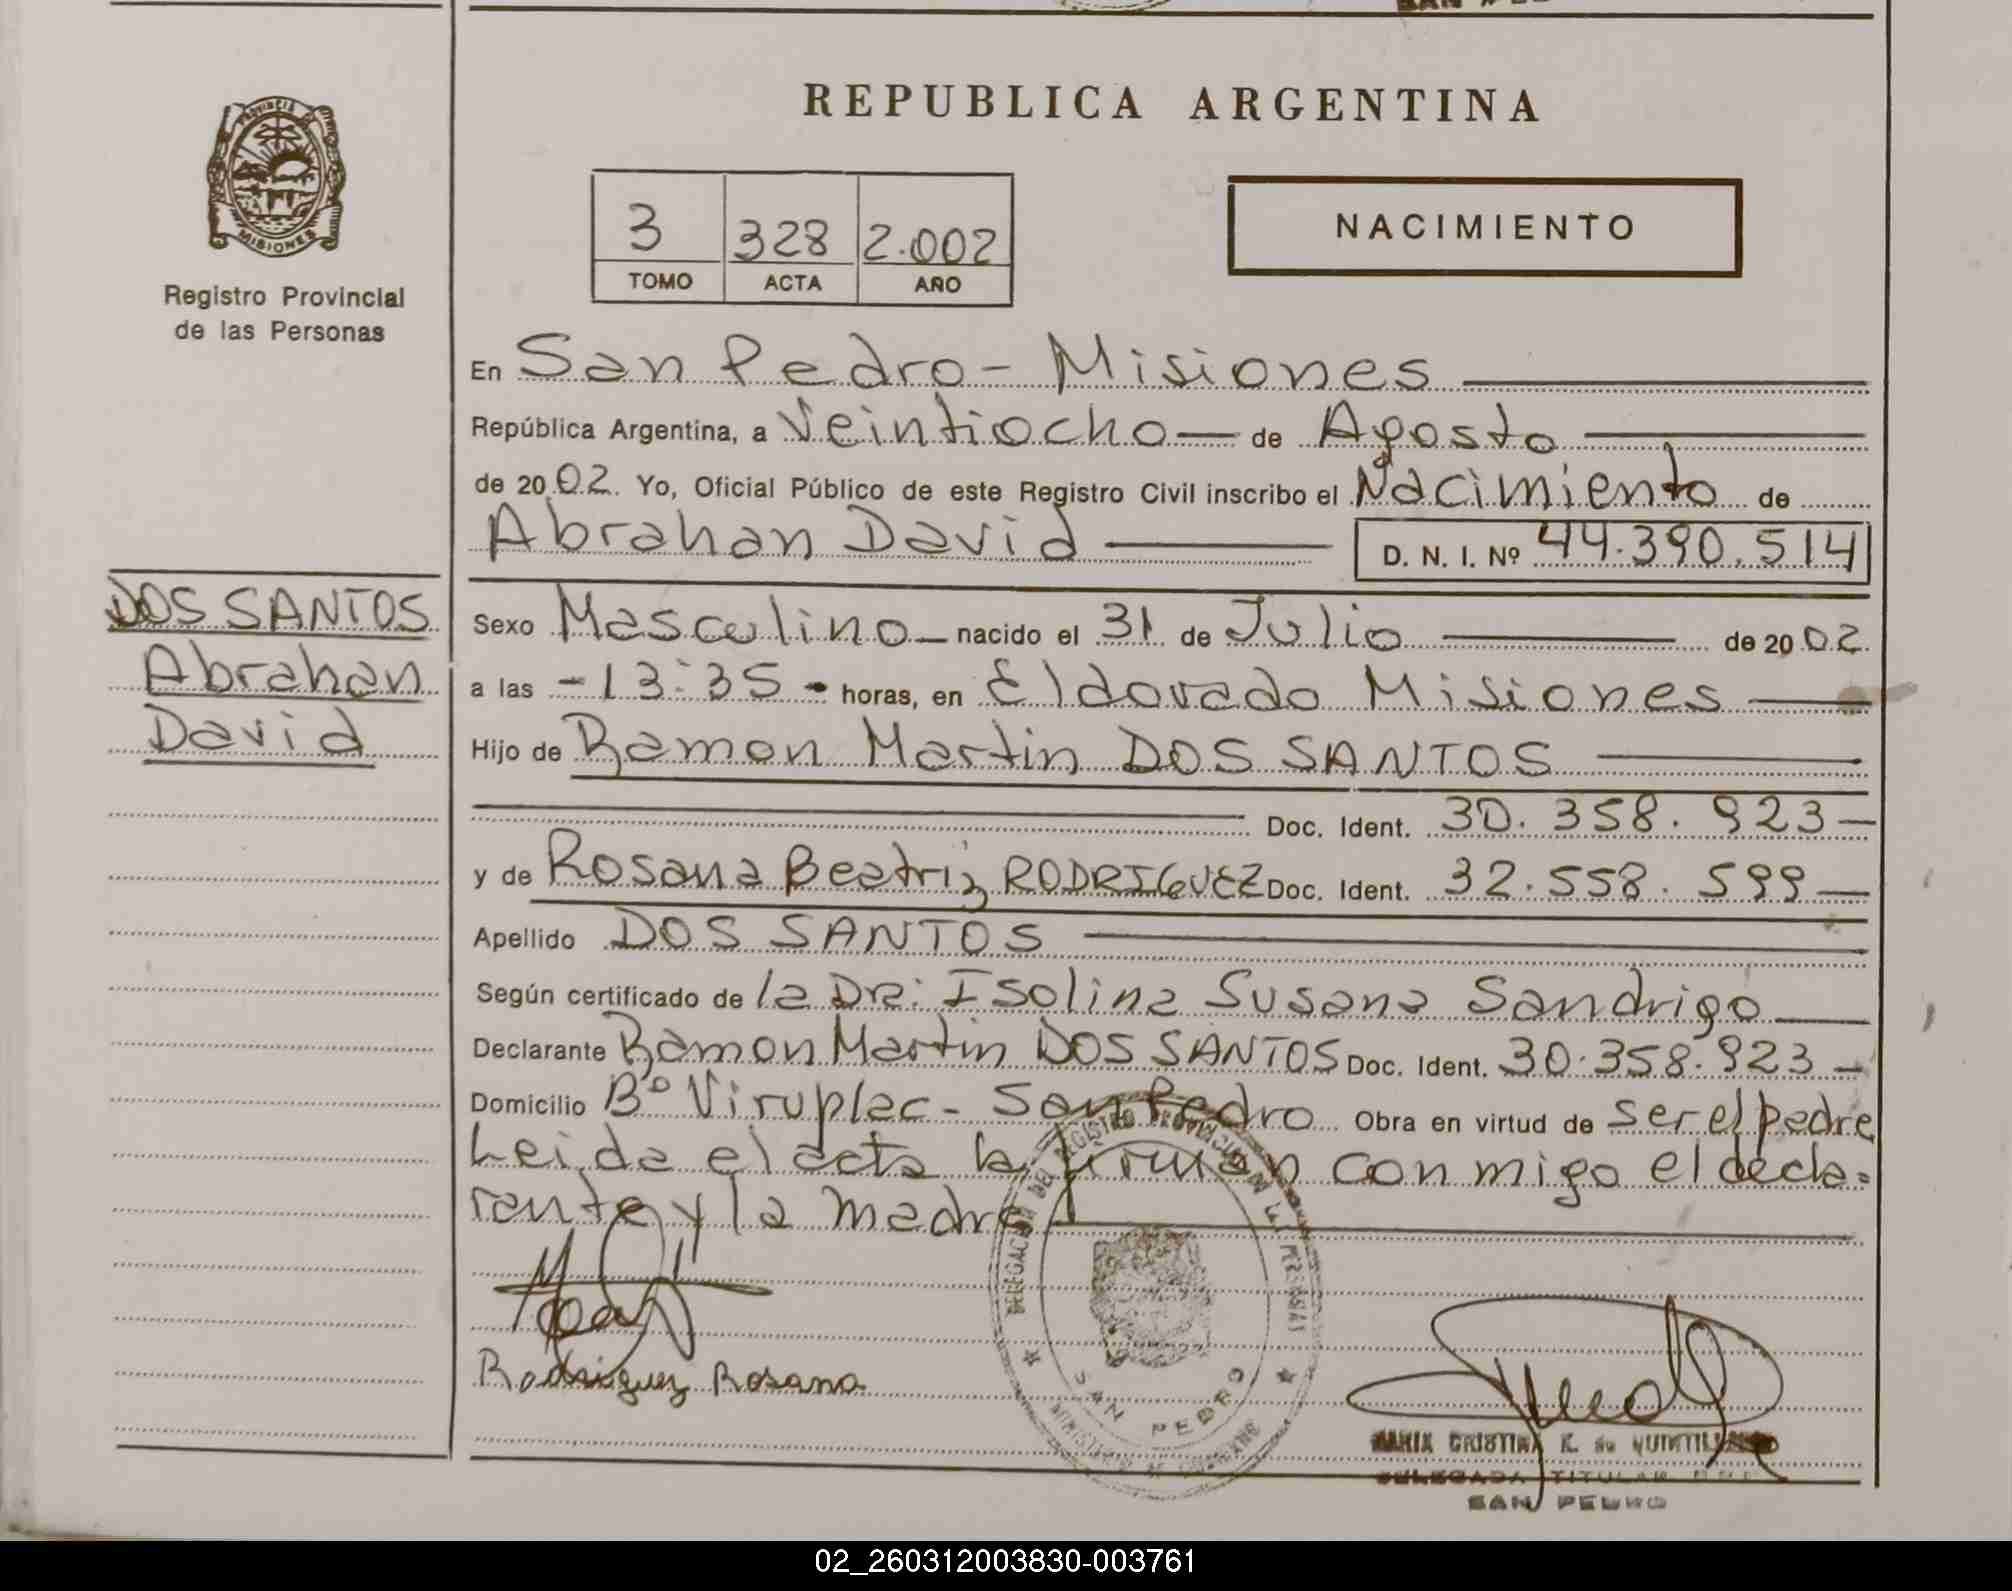 PROVINCIA
MISIONES
Registro Provincial
de las Personas
DOS SANTOS
Abrahan
David
REPUBLICA ARGENTINA
3 328 2.002
TOMO ACTA AÑO
NACIMIENTO
En San Pedro - Misiones
República Argentina, a Veintiocho de Agosto
de 2002. Yo, Oficial Público de este Registro Civil inscribo el Nacimiento de
Abrahan David D. N. I. Nº 44.390.514
Sexo Masculino nacido el 31 de Julio de 2002.
a las -13:35- horas, en Eldorado Misiones
Hijo de Ramon Martin DOS SANTOS
Doc. Ident. 30.358.923-
y de Rosana Beatriz RODRIGUEZ Doc. Ident. 32.558.599-
Apellido DOS SANTOS
Según certificado de la Dra: Isolina Susana Sandrigo
Declarante Ramon Martin DOS SANTOS Doc. Ident. 30.358.923-
Domicilio Bº Viruplac - San Pedro Obra en virtud de ser el padre
Leida el acta la firman con migo el decla-
rante y la madre
DELEGACION DEL REGISTRO PROVINCIAL DE LAS PERSONAS
SAN PEDRO
MINISTERIO DE GOBIERNO
Rodriguez Rosana
MARIA CRISTINA K. de
DELEGADA TITULAR
SAN PEDRO
02_260312003830-003761